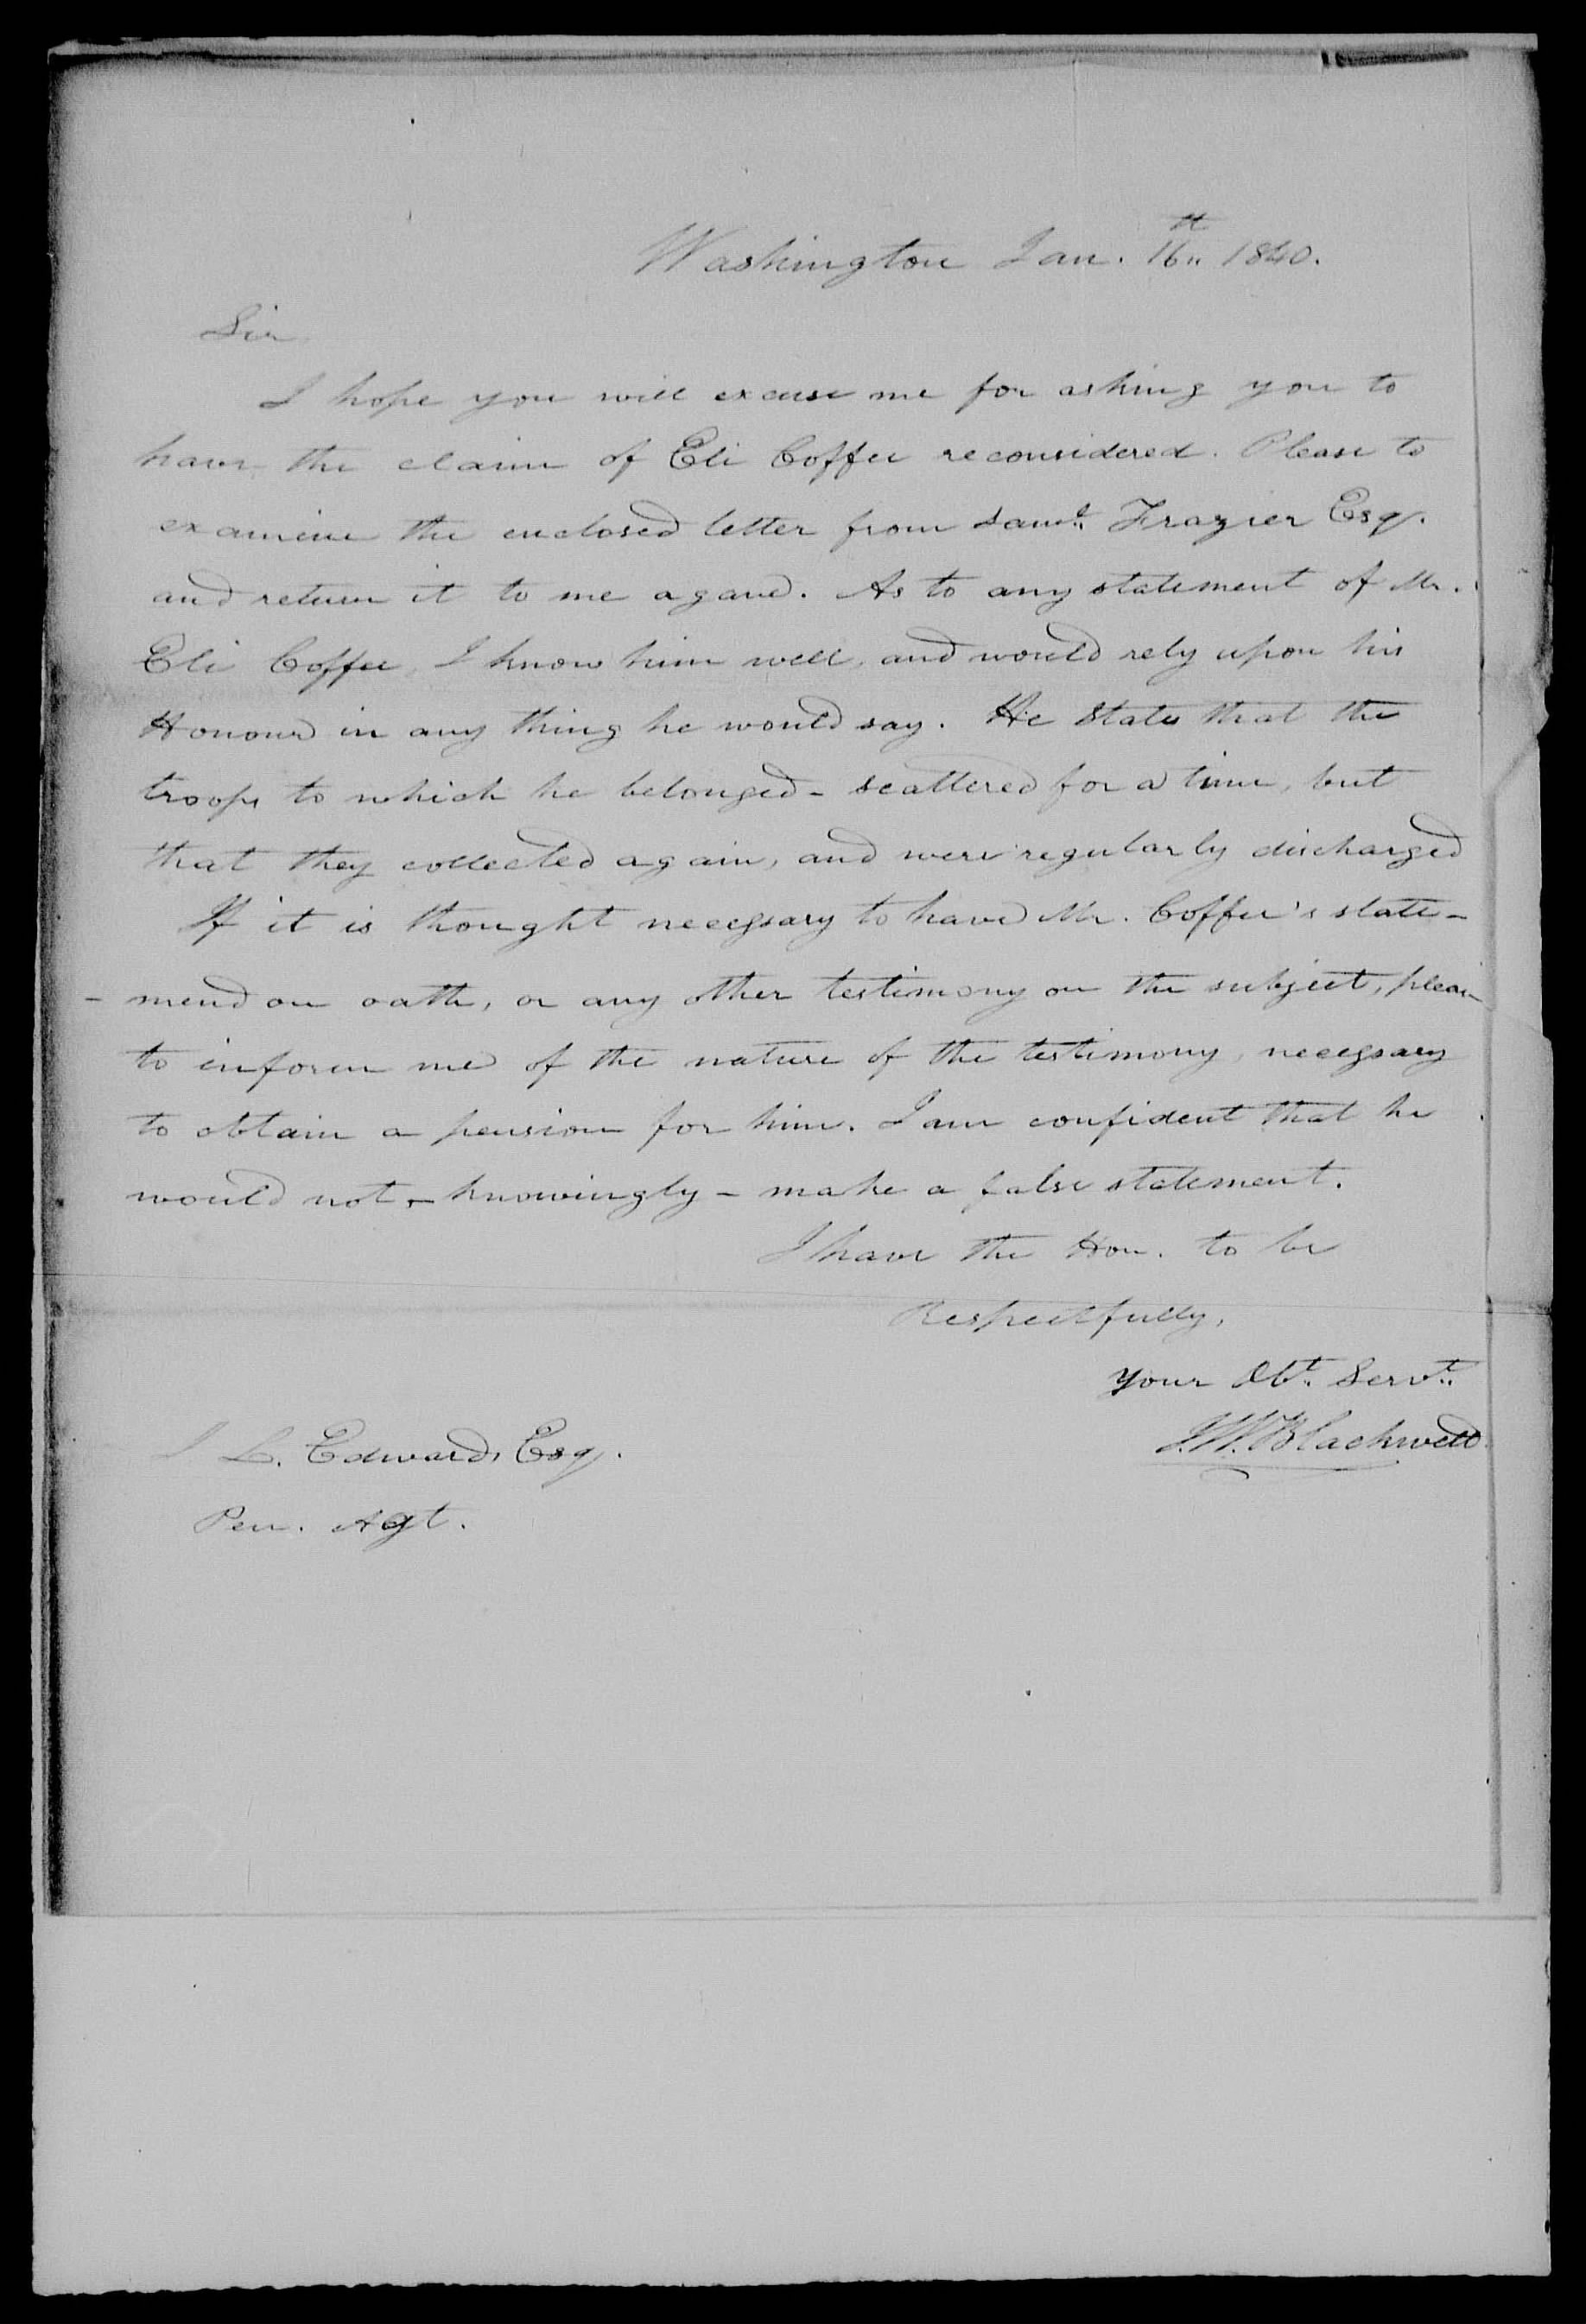 Washington Jan. 16th 1840.
Sir
I hope you will excuse me for asking you to
have the claim of Eli Coffee reconsidered. Please to
examine the enclosed letter from Saml. Frazier Esq.
and return it to me agane. As to any statement of Mr.
Eli Coffee, I know him well, and would rely upon his
Honour in any thing he would say. He states that the
troops to which he belonged - scattered for a time, but
that they collected again, and were regularly discharged
If it is thought necessary to have Mr. Coffee's state-
- mend on oath, or any other testimony on the subject, please
to inform me of the nature of the testimony, necessary
to obtain a pension for him. I am confident that he
would not, - knowingly - make a false statement.
I have the Hon. to be
Respectfully,
your Obt. Servt.
J.W. Blackwell
J L. Edwards Esq.
Pen. Agt.